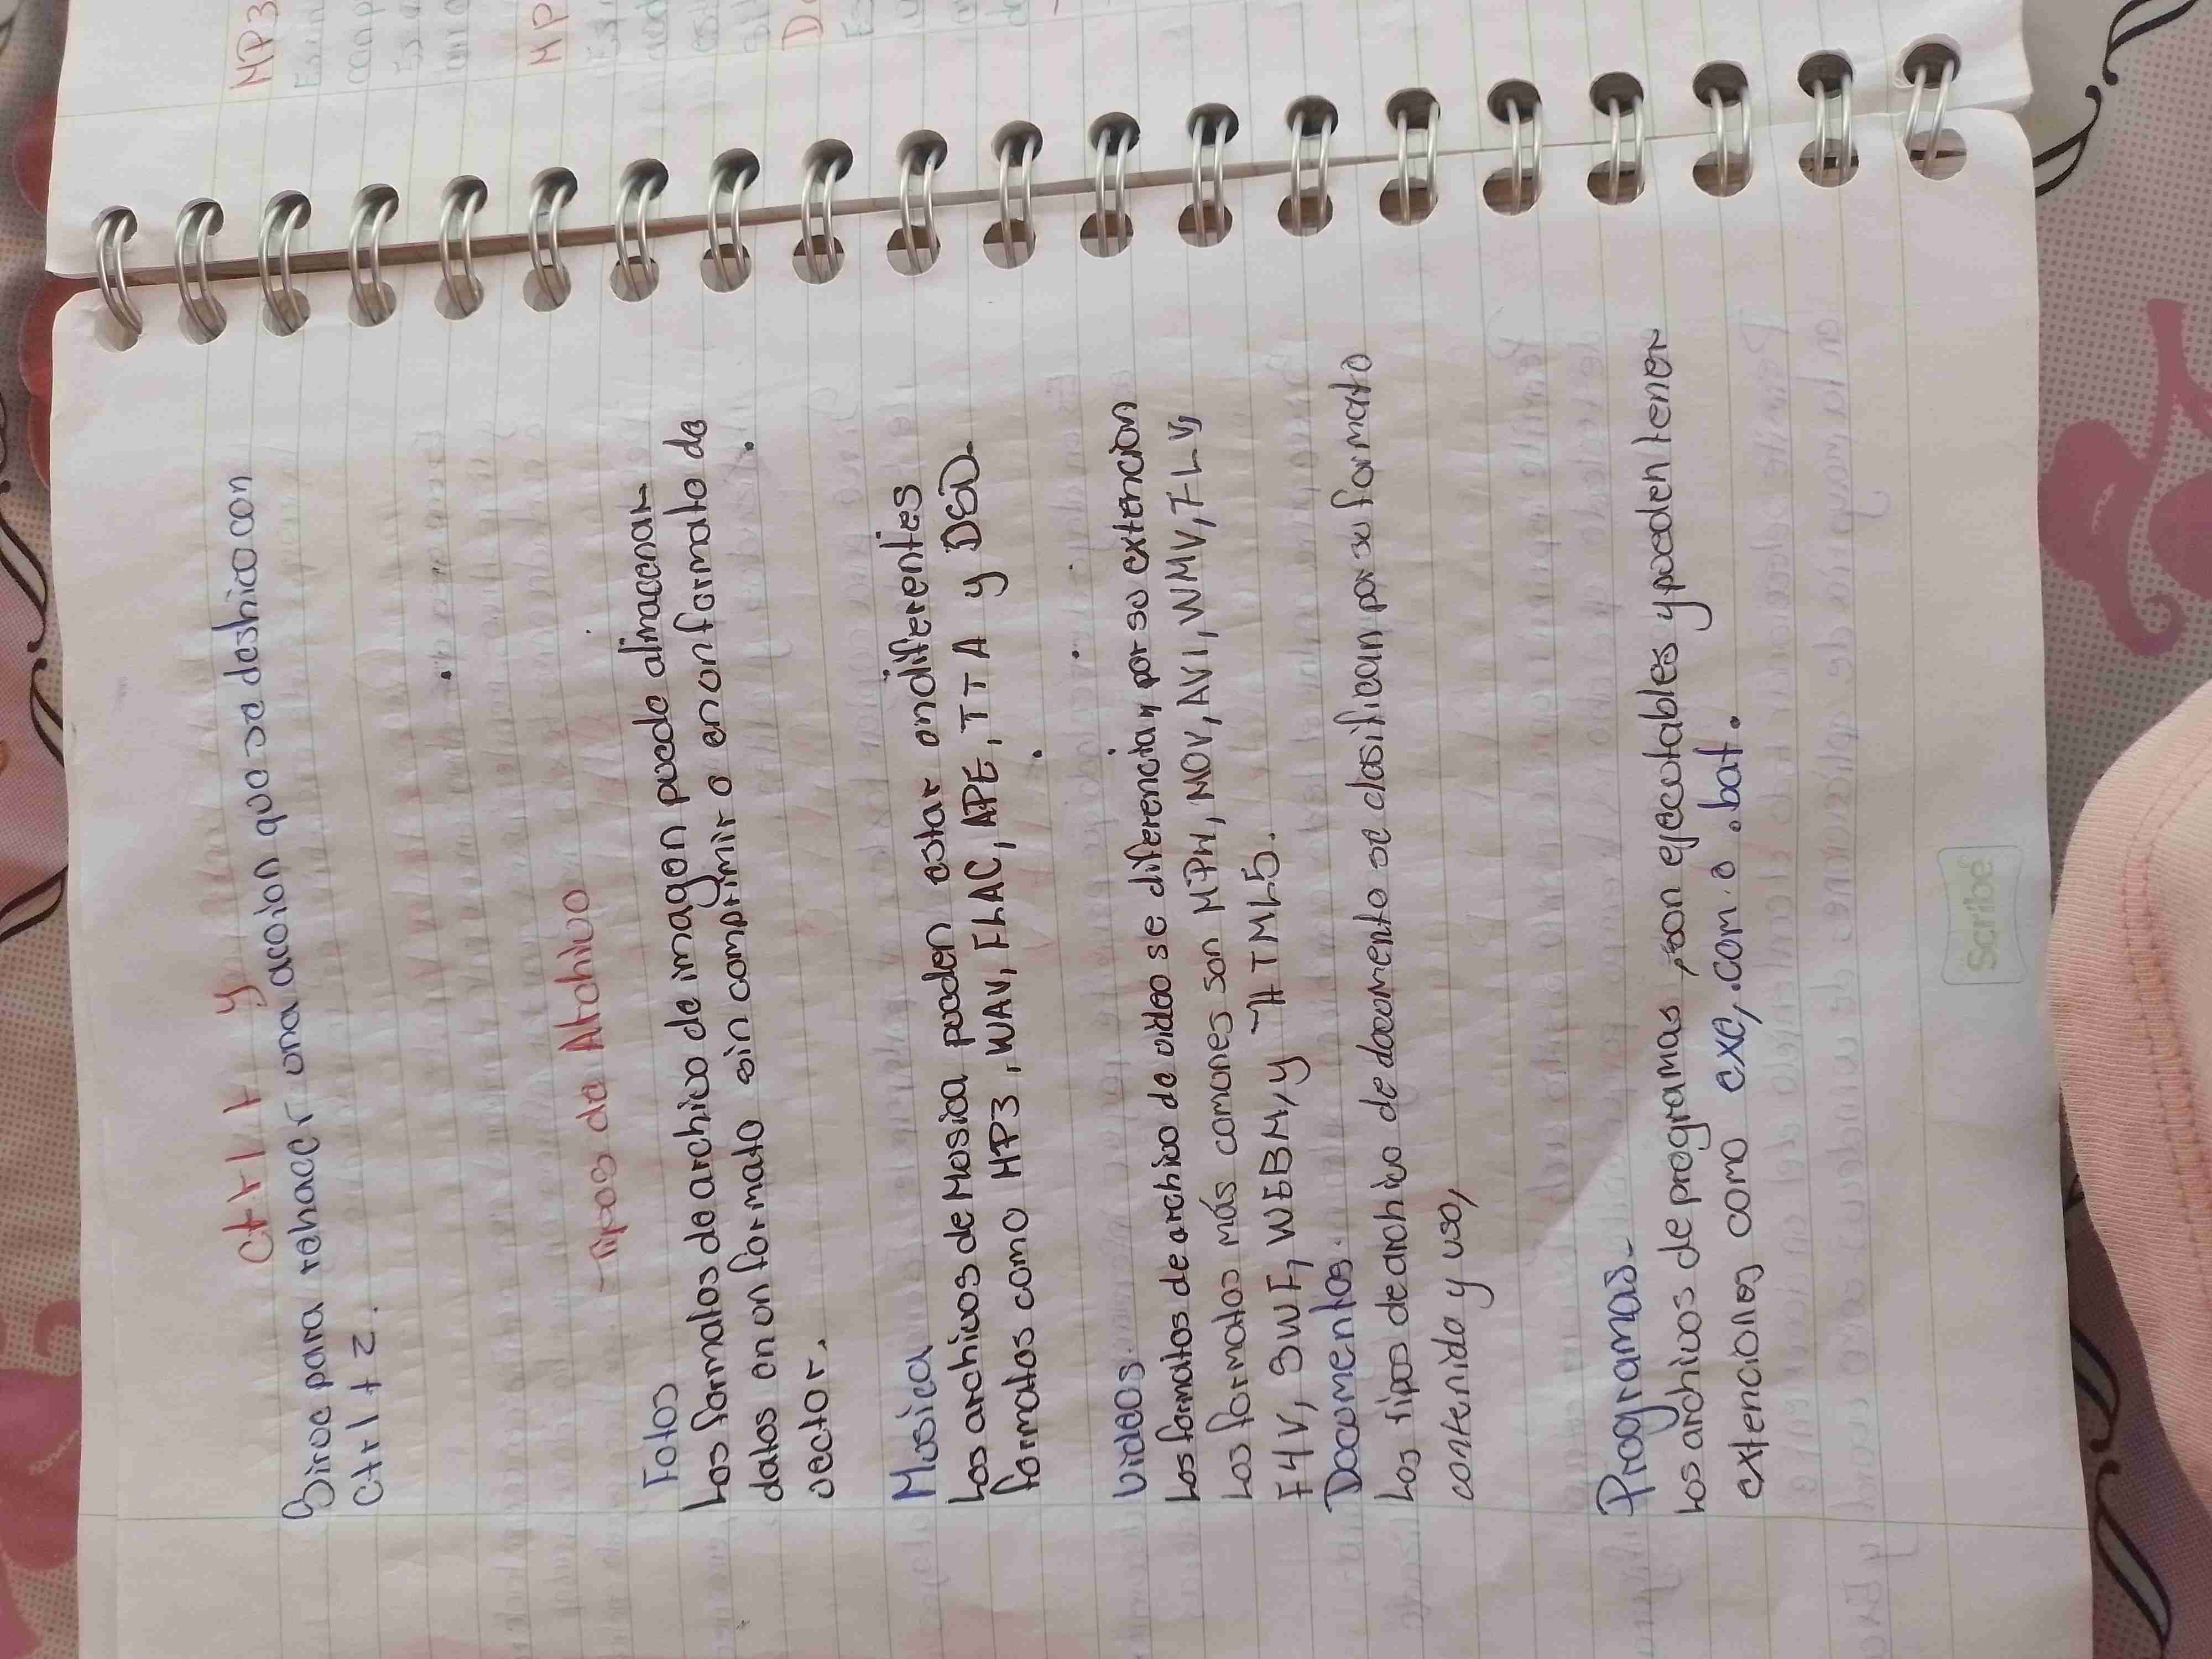 Ctrl + y
Sirve para rehacer una acción que se deshico con
Ctrl + z.
- Tipos de Atchivo
Fotos
Los formatos de archivo de imagen puede alimacenar
datos en un formato sin comprimir o en un formato de
vector.
Musica
Los archivos de Musica pueden estar en diferentes
formatos como MP3, WAV, FLAC, APE, TTA y DSD.
Videos.
Los formatos de archivo de video se diferencian por su extencion
Los formatos más comunes son MP4, MOV, AVI, WMV, FLV,
F4V, SWF, WEBM, y HTML5.
Documentos.
Los tipos de archivo de documento se clasifican por su formato
contenido y uso,
Programas-
Los archivos de programas, son ejecutables y pueden tener
extenciones como exe, .com. o .bat.
Scribe
MP3
MP
D